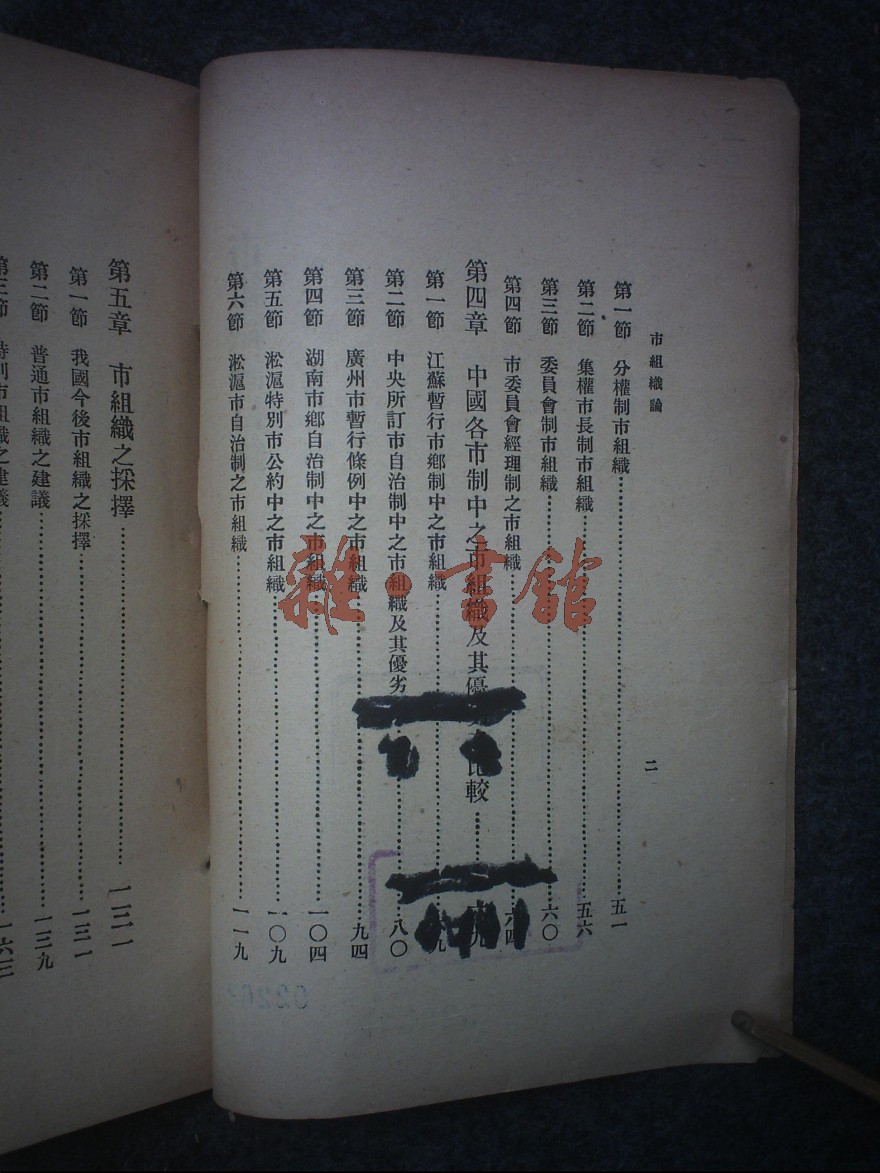 市組織論
二
第一節 分權制市組織……五一
第二節 集權市長制市組織……五六
第三節 委員會制市組織……六〇
第四節 市委員會經理制之市組織……六四
第四章 中國各市制中之市組織及其優 比較……
第一節 江蘇暫行市鄉制中之市組織……九
第二節 中央所訂市自治制中之市組織及其優劣……八〇
第三節 廣州市暫行條例中之市組織……九四
第四節 湖南市鄉自治制中之市組織……一〇四
第五節 淞滬特別市公約中之市組織……一〇九
第六節 淞滬市自治制之市組織……一一九
第五章 市組織之採擇……一三一
第一節 我國今後市組織之採擇……一三一
第二節 普通市組織之建議……一三九
第三節 特別市組織之建議……一六三
雜·書館